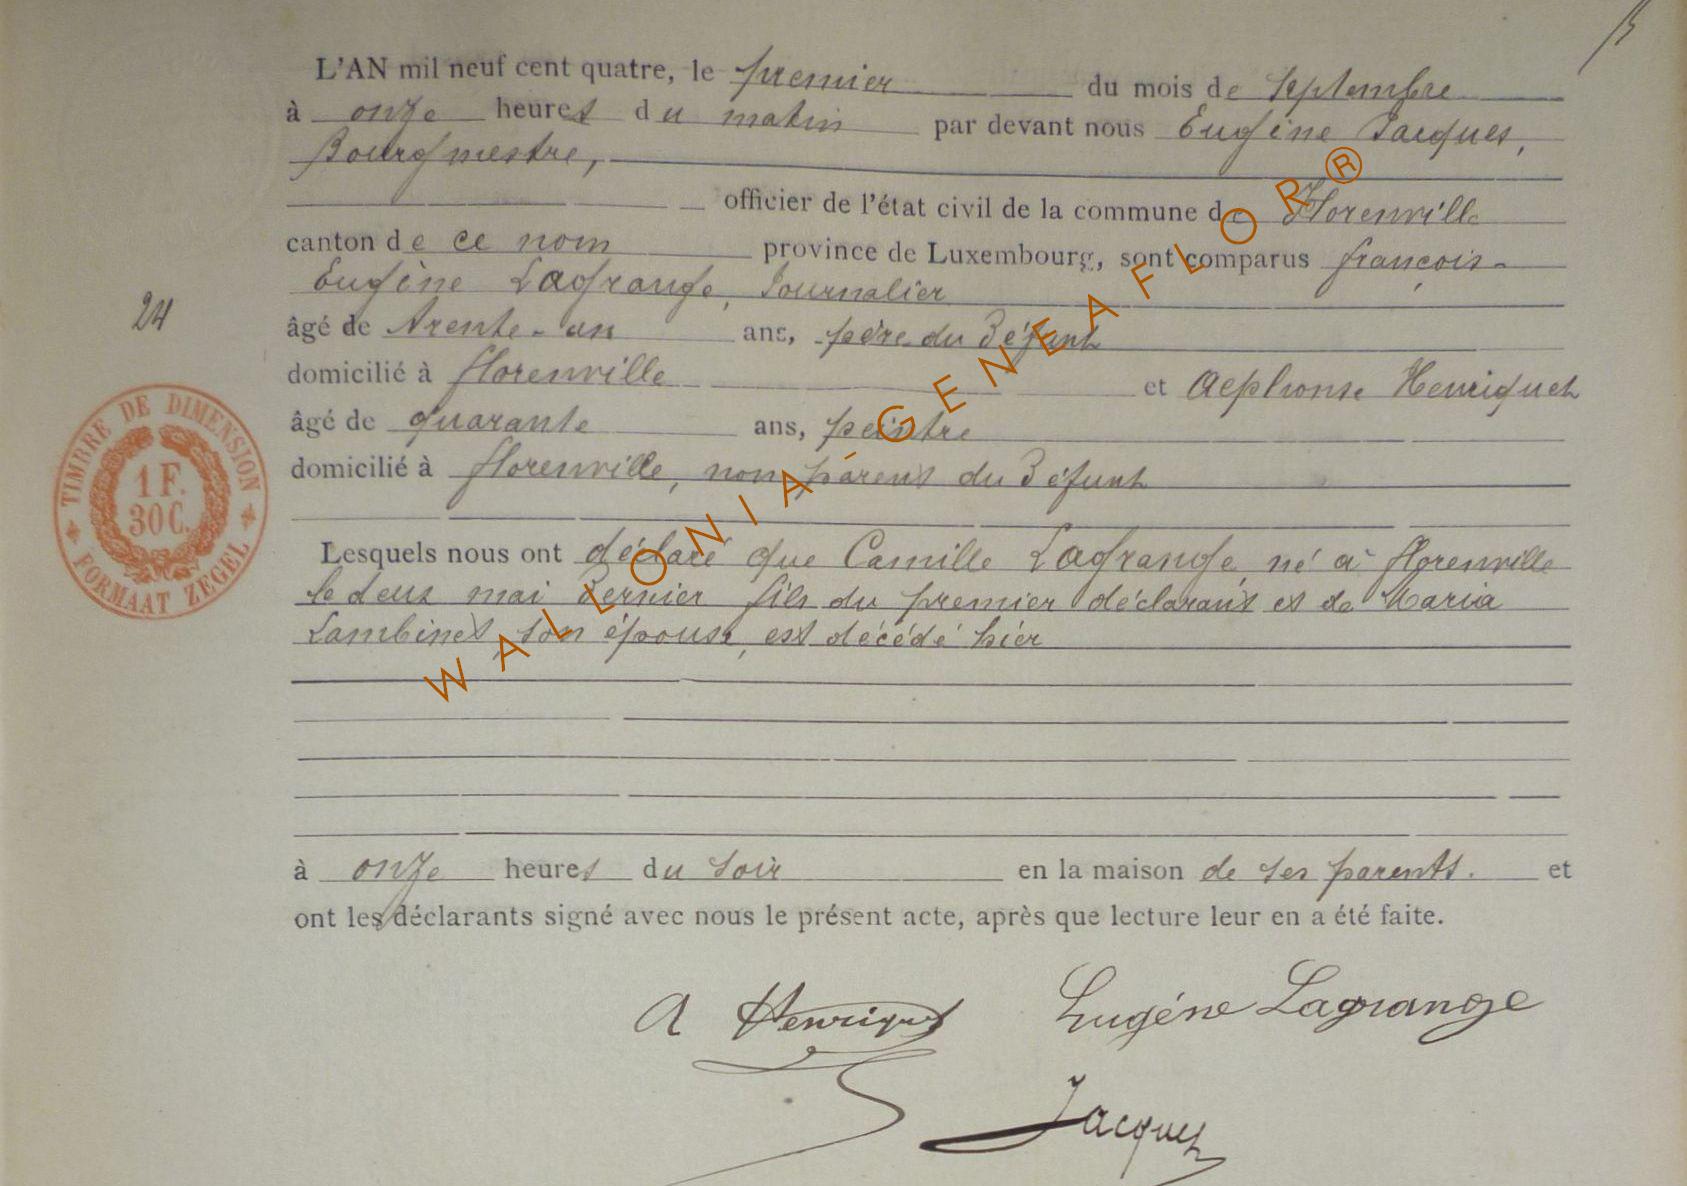 L'AN mil neuf cent quatre, le premier du mois de Septembre
à onze heures du matin par devant nous Eugène Jacques,
Bourgmestre,
officier de l'état civil de la commune de Florenville
canton de ce nom province de Luxembourg, sont comparus françois-
Eugène Lagrange, Journalier
âgé de trente-un ans, père du défunt
domicilié à florenville et Alphonse Henriquet
âgé de quarante ans, peintre
domicilié à florenville, non parent du défunt
Lesquels nous ont déclaré que Camille Lagrange, né à florenville
le deux mai dernier fils du premier déclarant et de Maria
Lambinet, son épouse, est décédé hier
à onze heures du soir en la maison de ses parents. et
ont les déclarants signé avec nous le présent acte, après que lecture leur en a été faite.
A Henriquet Eugéne Lagrange
Jacques
24
TIMBRE DE DIMENSION
1 F.
30 C.
FORMAAT ZEGEL
WALLONIA GENEAFLOR®